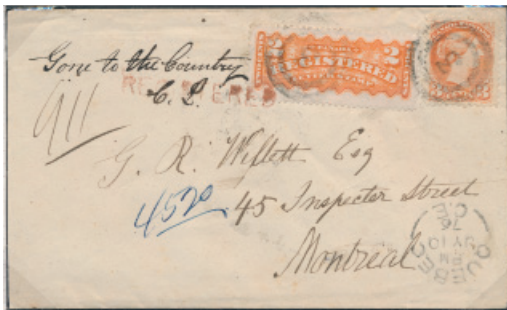 Gone to the Country
C. L.
REGISTERED
2 REGISTERED 2
911
G. R. Wiflett Esq
4520
45 Inspecter Street
Montreal
QUEBEC
JY 10
76